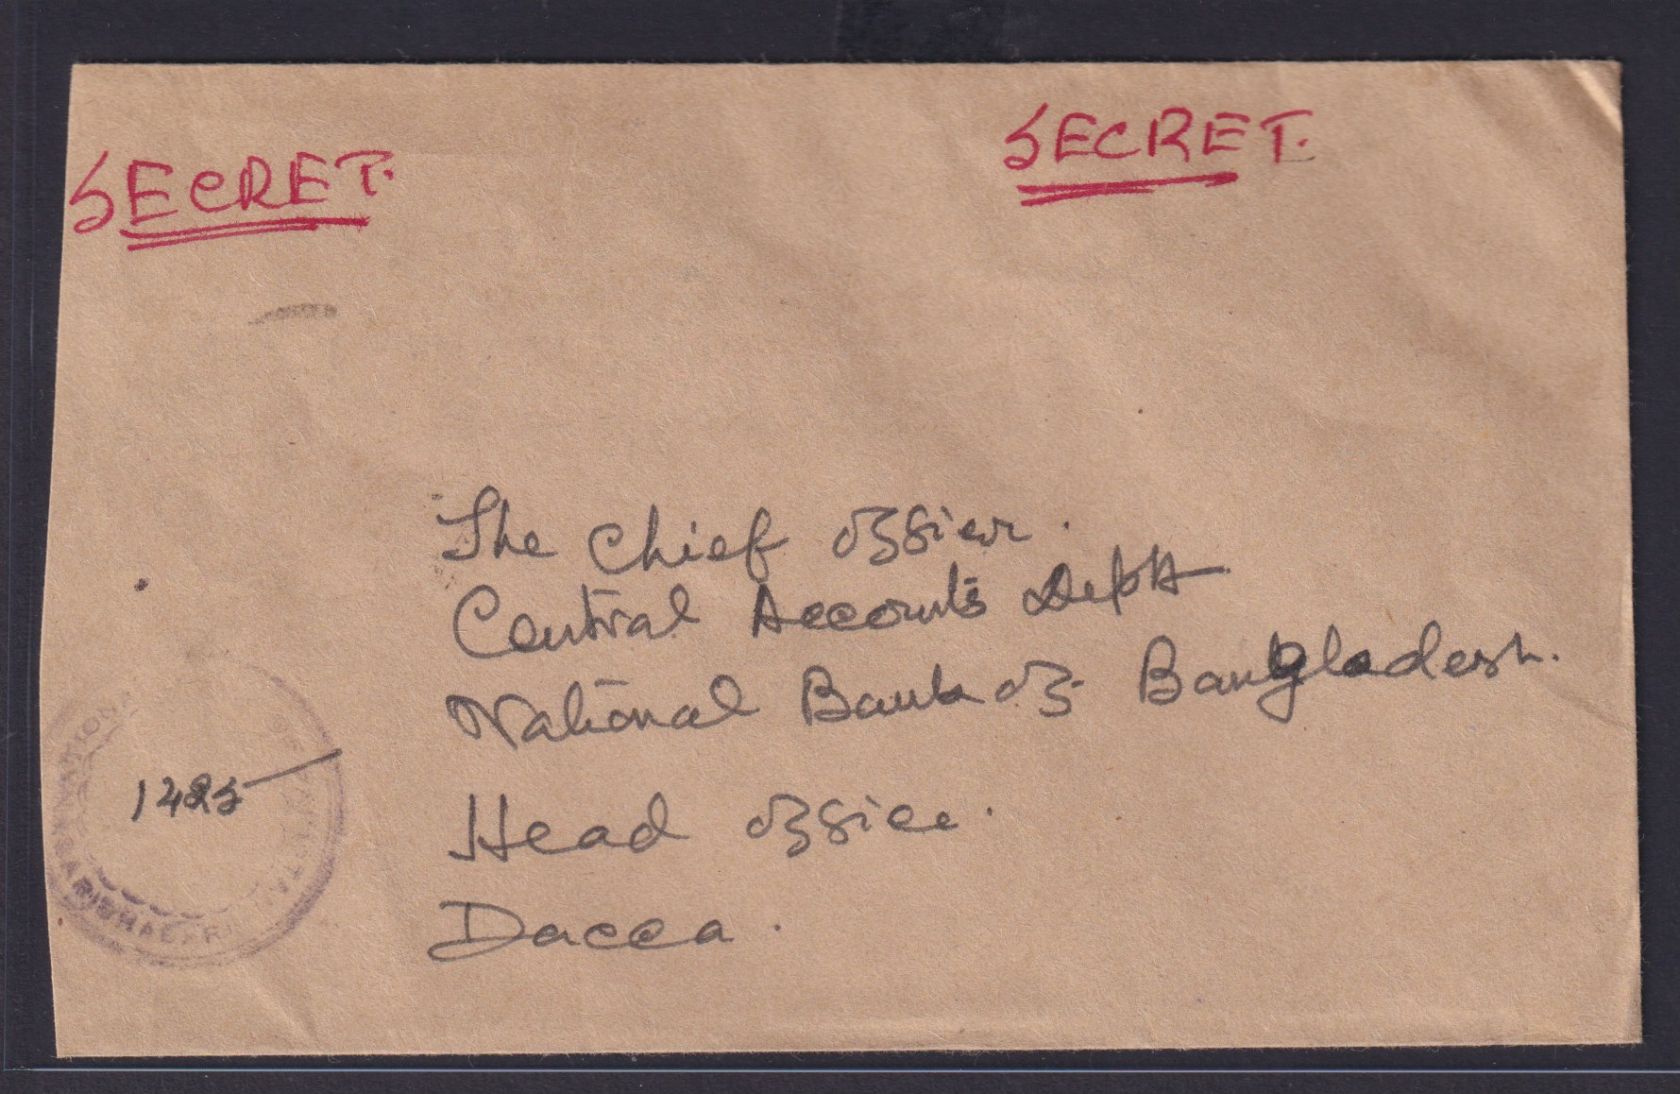 SECRET.
SECRET.
The Chief Officer.
Central Accounts Deptt
National Bank of Bangladesh.
Head Office.
Dacca.
1425